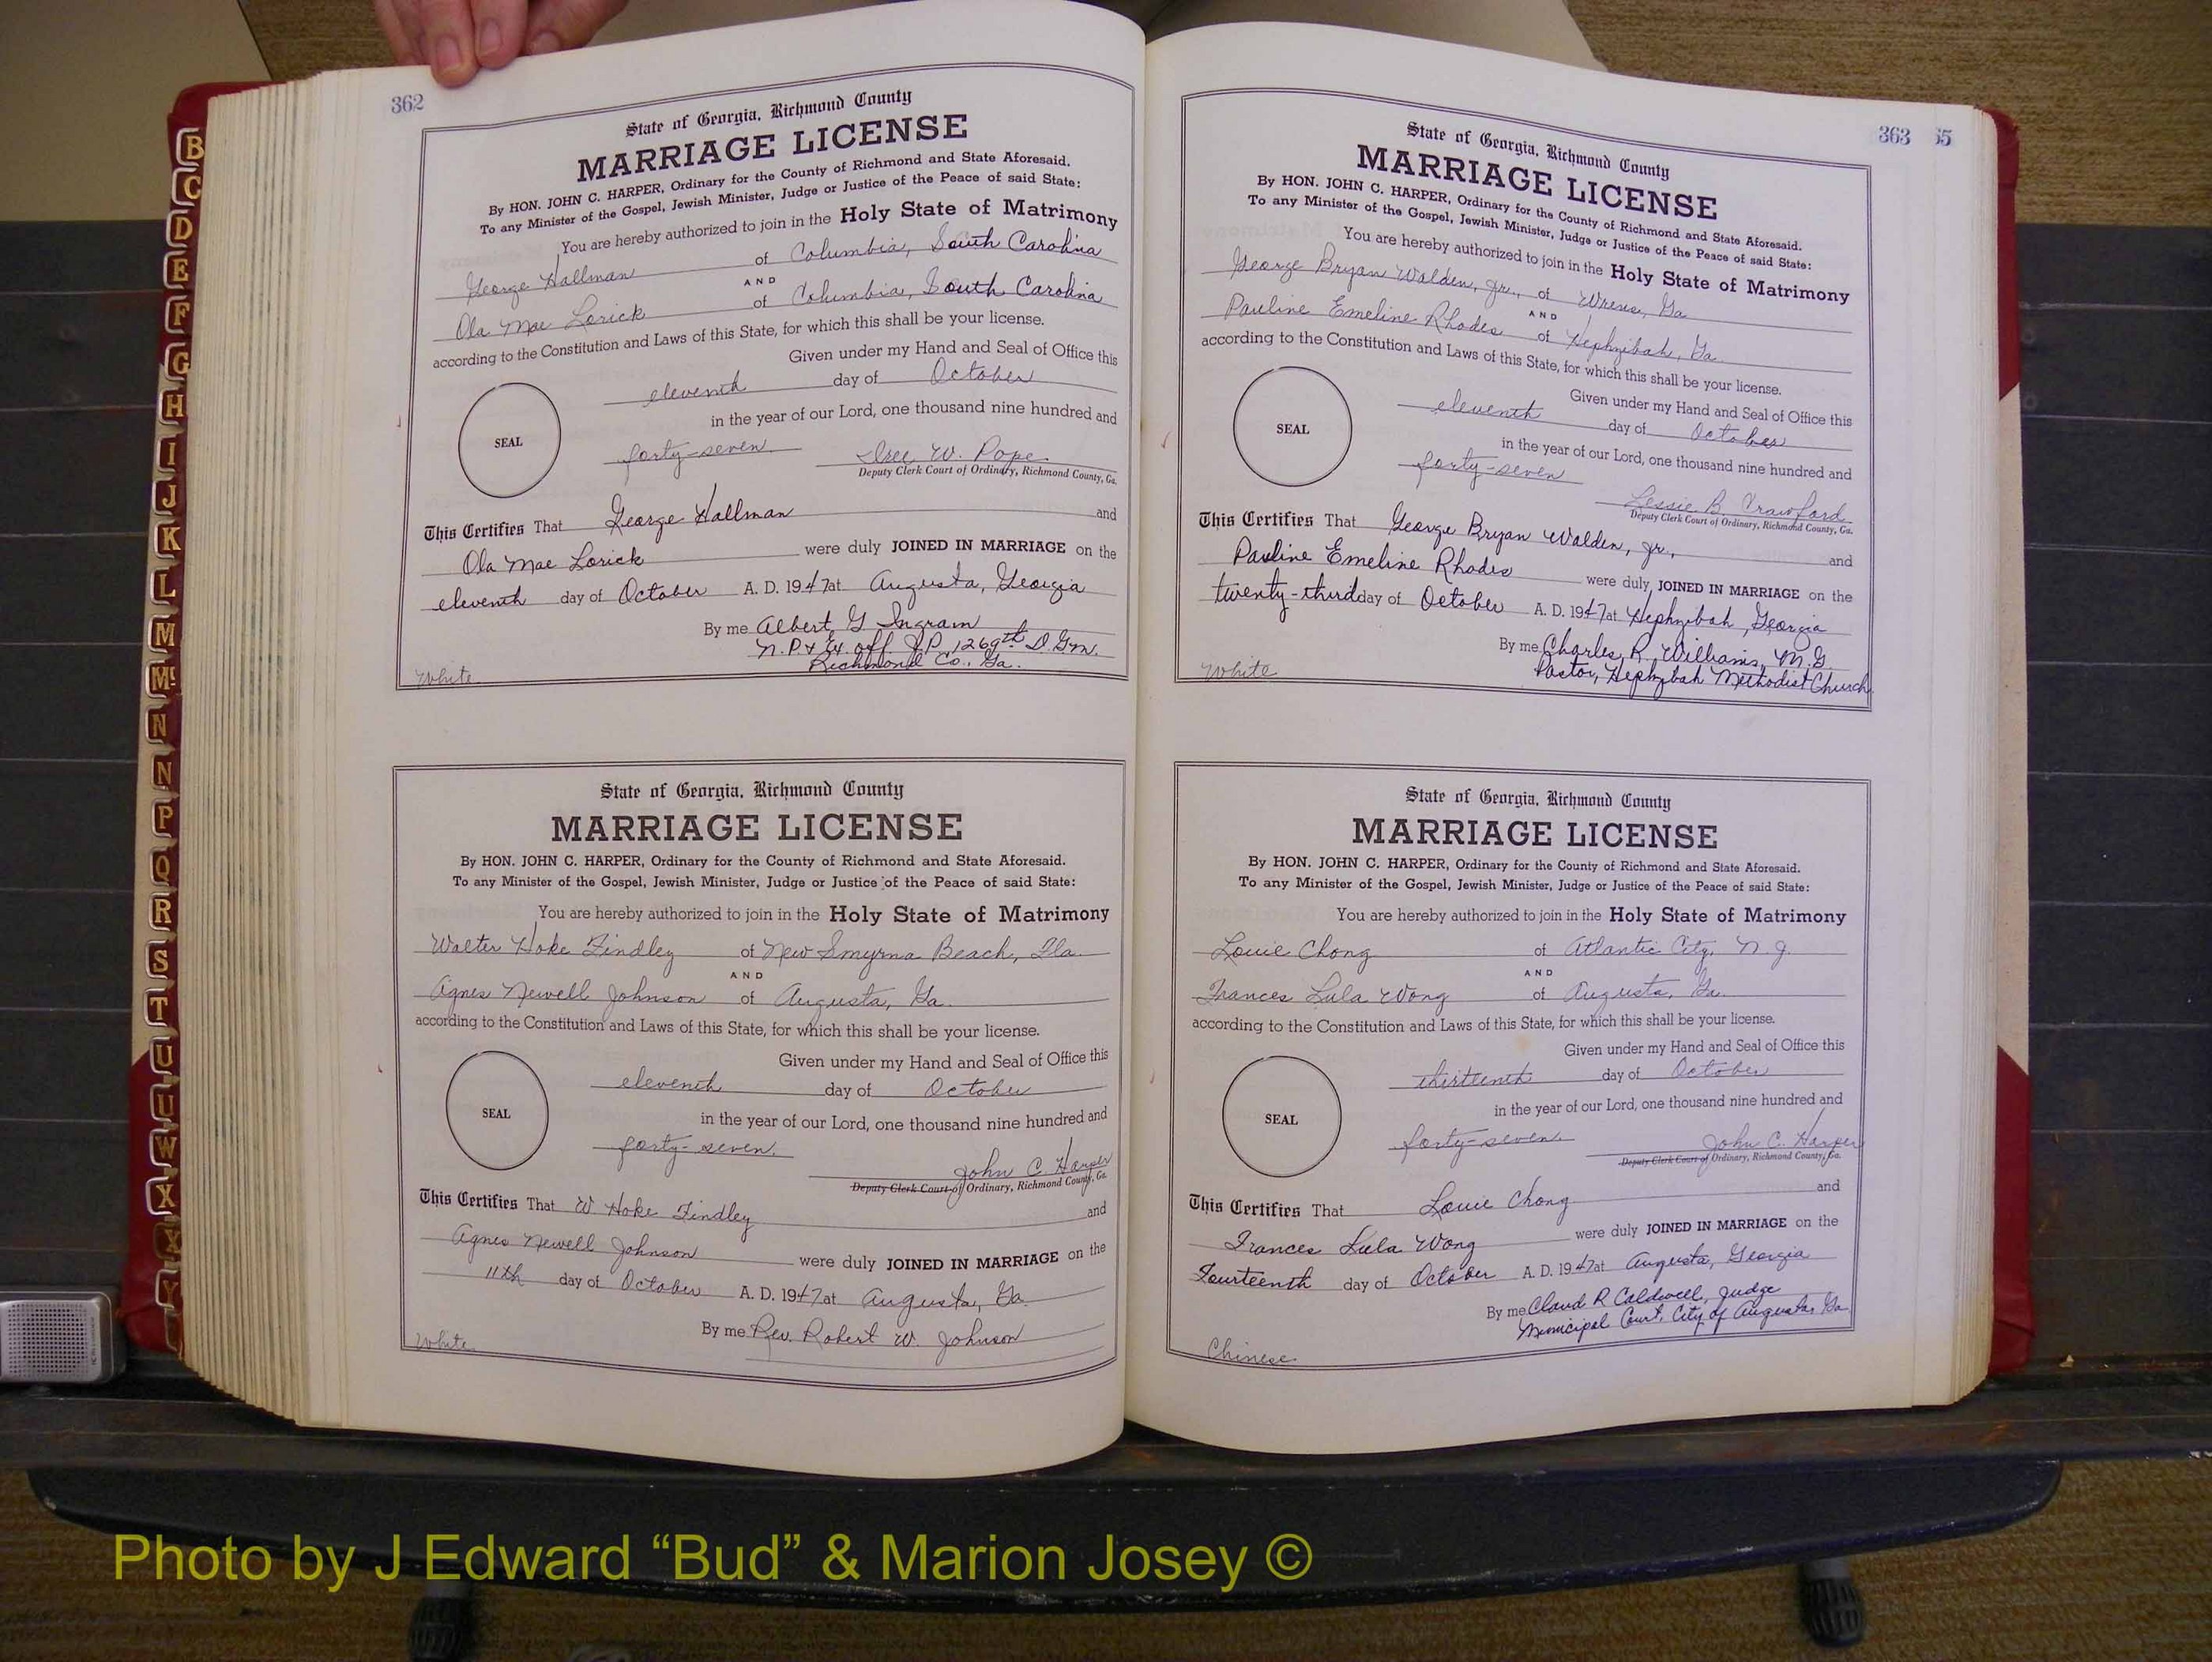 362
State of Georgia, Richmond County
MARRIAGE LICENSE
By HON. JOHN C. HARPER, Ordinary for the County of Richmond and State Aforesaid.
To any Minister of the Gospel, Jewish Minister, Judge or Justice of the Peace of said State:
You are hereby authorized to join in the Holy State of Matrimony
George Hallman of Columbia, South Carolina
AND
Ola Mae Lorick of Columbia, South Carolina
according to the Constitution and Laws of this State, for which this shall be your license.
Given under my Hand and Seal of Office this
eleventh day of October
in the year of our Lord, one thousand nine hundred and
SEAL
forty-seven. W. Pope
Deputy Clerk Court of Ordinary, Richmond County, Ga.
This Certifies That George Hallman and
Ola Mae Lorick were duly JOINED IN MARRIAGE on the
eleventh day of October A. D. 1947 at Augusta, Georgia
By me Albert G Ingram
N.P. & Ex. off. J.P. 1269th D. G.M.
Richmond Co., Ga.
White
State of Georgia, Richmond County
MARRIAGE LICENSE
By HON. JOHN C. HARPER, Ordinary for the County of Richmond and State Aforesaid.
To any Minister of the Gospel, Jewish Minister, Judge or Justice of the Peace of said State:
You are hereby authorized to join in the Holy State of Matrimony
Walter Hoke Findley of New Smyrna Beach, Fla.
AND
Agnes Newell Johnson of Augusta, Ga.
according to the Constitution and Laws of this State, for which this shall be your license.
Given under my Hand and Seal of Office this
eleventh day of October
SEAL
in the year of our Lord, one thousand nine hundred and
forty-seven. John C. Harper
Deputy Clerk Court of Ordinary, Richmond County, Ga.
This Certifies That W Hoke Findley and
Agnes Newell Johnson were duly JOINED IN MARRIAGE on the
11th day of October A. D. 1947 at Augusta, Ga.
By me Rev. Robert W. Johnson
White
363 55
State of Georgia, Richmond County
MARRIAGE LICENSE
By HON. JOHN C. HARPER, Ordinary for the County of Richmond and State Aforesaid.
To any Minister of the Gospel, Jewish Minister, Judge or Justice of the Peace of said State:
You are hereby authorized to join in the Holy State of Matrimony
George Bryan Walden, Jr., of Wrens, Ga
AND
Pauline Emeline Rhodes of Hephzibah, Ga.
according to the Constitution and Laws of this State, for which this shall be your license.
Given under my Hand and Seal of Office this
eleventh day of October
SEAL
in the year of our Lord, one thousand nine hundred and
forty-seven
Lessie B. Crawford
Deputy Clerk Court of Ordinary, Richmond County, Ga.
This Certifies That George Bryan Walden, Jr., and
Pauline Emeline Rhodes were duly JOINED IN MARRIAGE on the
twenty-third day of October A. D. 1947 at Hephzibah, Georgia
By me Charles R. Williams, M.G.
Pastor, Hephzibah Methodist Church
White
State of Georgia, Richmond County
MARRIAGE LICENSE
By HON. JOHN C. HARPER, Ordinary for the County of Richmond and State Aforesaid.
To any Minister of the Gospel, Jewish Minister, Judge or Justice of the Peace of said State:
You are hereby authorized to join in the Holy State of Matrimony
Louie Chong of Atlantic City, N. J.
AND
Frances Lula Wong of Augusta, Ga.
according to the Constitution and Laws of this State, for which this shall be your license.
Given under my Hand and Seal of Office this
thirteenth day of October
SEAL
in the year of our Lord, one thousand nine hundred and
forty-seven. John C. Harper
Deputy Clerk Court of Ordinary, Richmond County, Ga.
This Certifies That Louie Chong and
Frances Lula Wong were duly JOINED IN MARRIAGE on the
Fourteenth day of October A. D. 1947 at Augusta, Georgia
By me Claud R Caldwell, Judge
Municipal Court, City of Augusta, Ga.
Chinese
B
C
D
E
F
G
H
I
J
K
L
M
Mc
N
N
P
Q
R
S
T
U
U
W
X
X
Y
Photo by J Edward “Bud” & Marion Josey ©